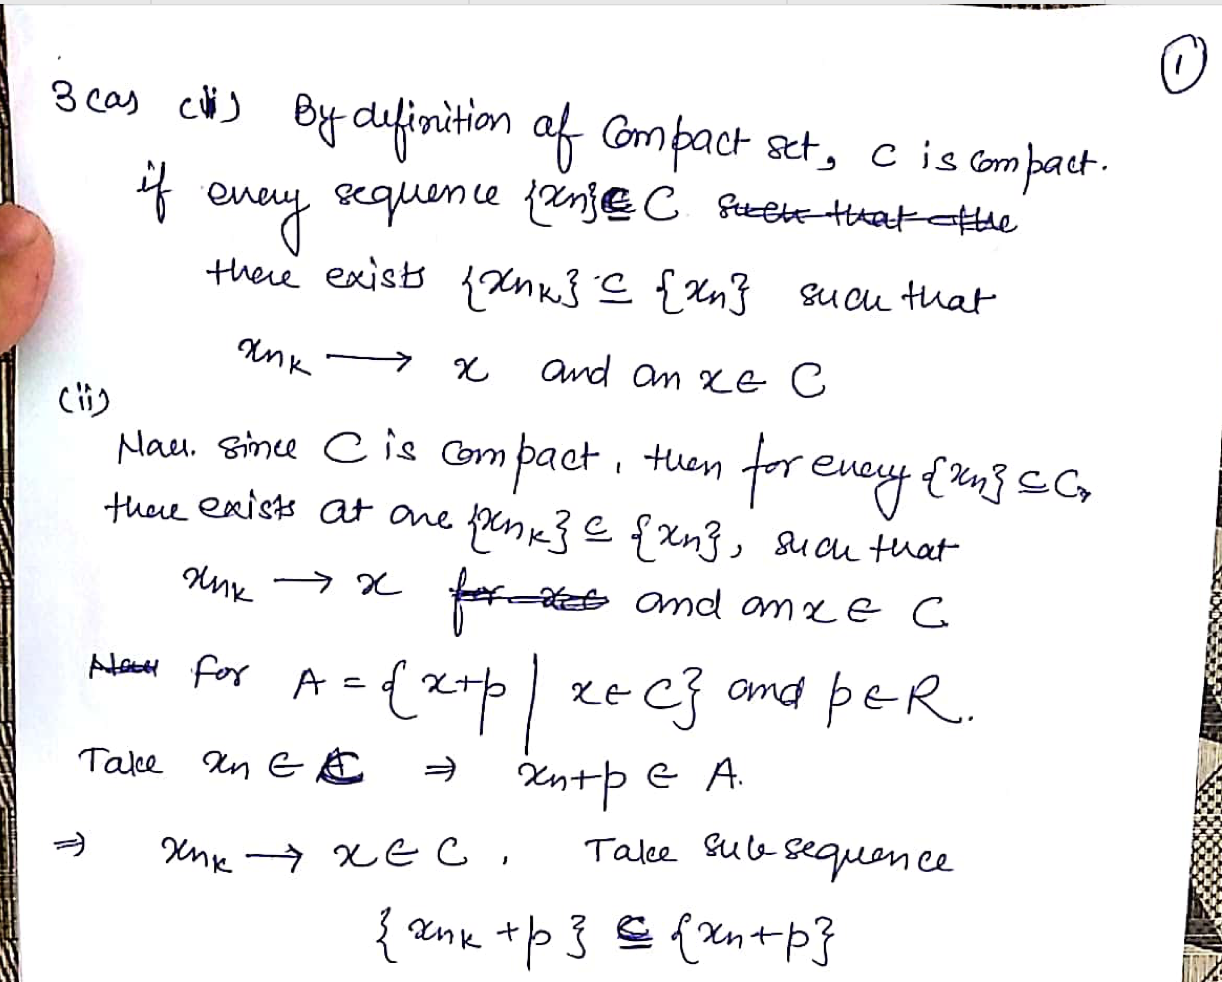 1
3 (a) (i) By definition of Compact set, C is Compact.
if every sequence {xn} ⊆ C
there exists {xnk} ⊆ {xn} such that
xnk → x and an x ∈ C
(ii)
Now. since C is compact, then for every {xn} ⊆ C,
there exists at one {xnk} ⊆ {xn}, such that
xnk → x and an x ∈ C
for A = {x+p | x ∈ C} and p ∈ R.
Take xn ∈ C ⇒ xn+p ∈ A.
⇒ xnk → x ∈ C, Take subsequence
{xnk + p} ⊆ {xn+p}